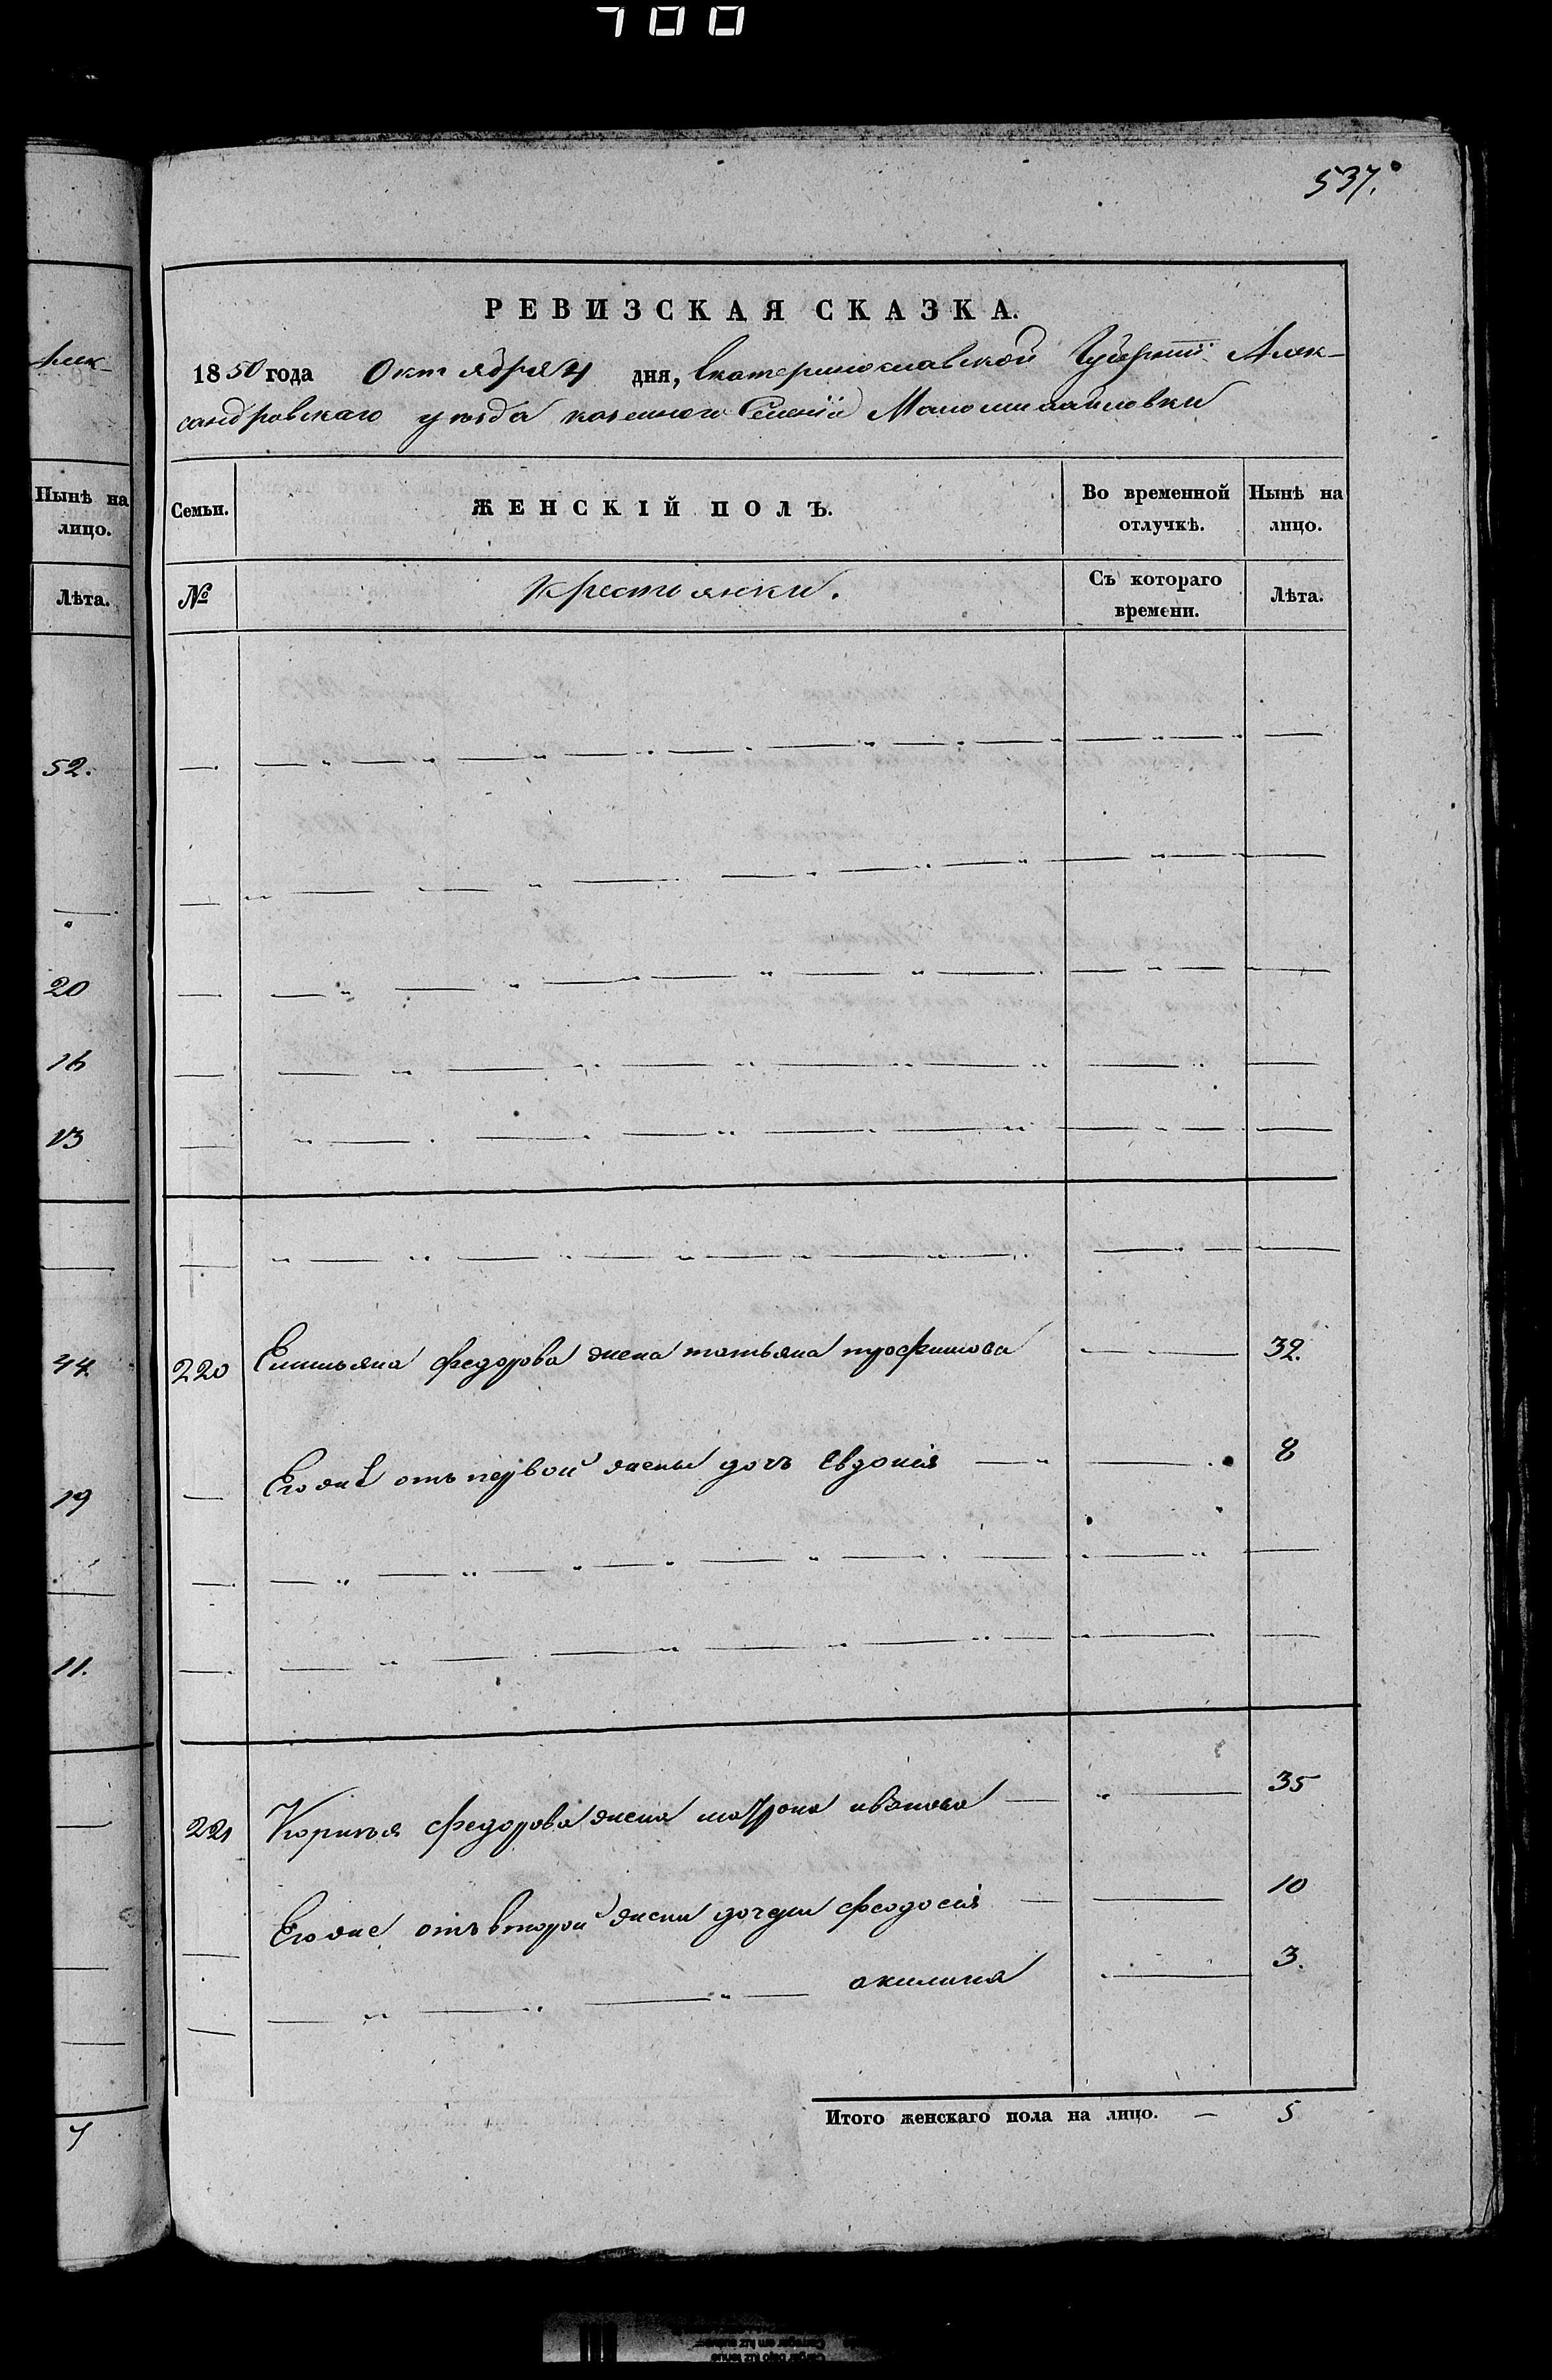 700
537.
лек-
Нынѣ на
лицо.
Лѣта.
52.
20
16
13
44
19
11.
7
РЕВИЗСКАЯ СКАЗКА.
1850 года Октября 4 дня, Екатеринославской Губернiи Алек-
сандровскаго уѣзда казенного Селенiя Маломихайловки
Семьи. ЖЕНСКІЙ ПОЛЪ. Во временной отлучкѣ. Нынѣ на лицо.
№ Крестьянки. Съ котораго времени. Лѣта.
220 Емильяна федорова жена татьяна трофимова 32.
Его же отъ первой жены дочъ Евдокiя 8
221 Корнья федорова жена матрона иванова 35
Его же отъ второй жены дочери феодосiя 10
акилина 3.
Итого женскаго пола на лицо. — 5